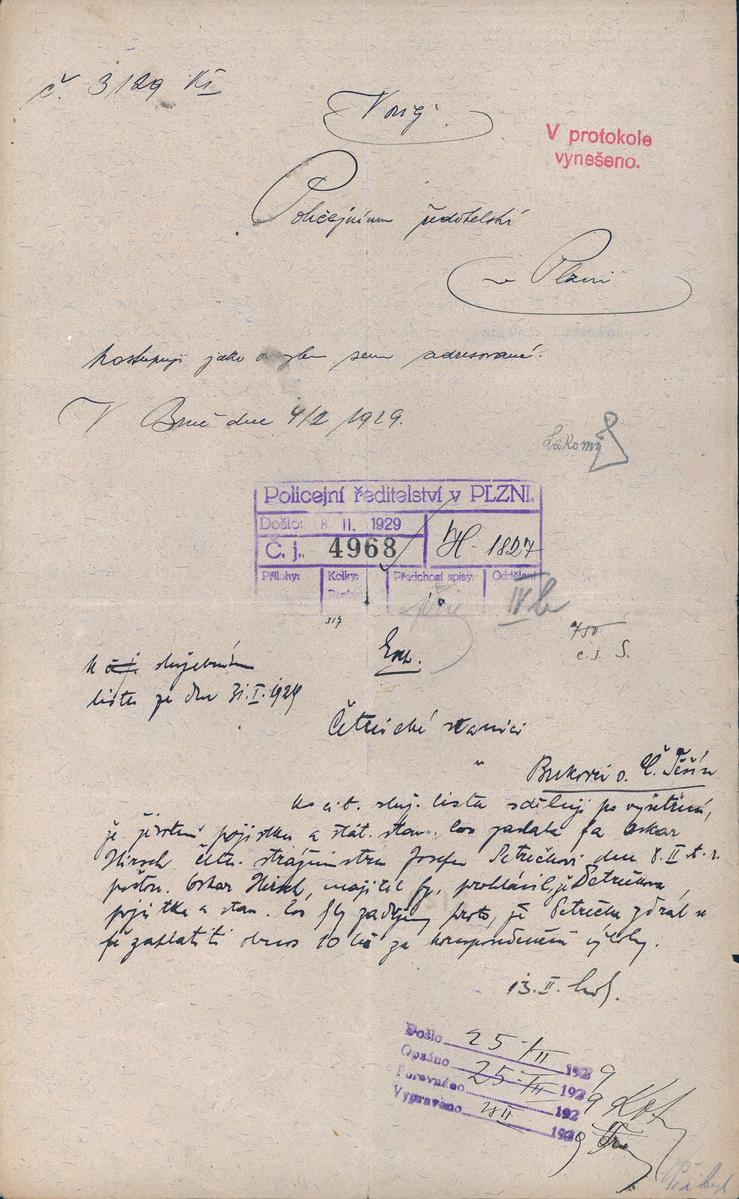 č. 3/29
V protokole
vynešeno.
Policejnímu ředitelství
v Plzni
postupuji jako omylem sem adresované.
V Brně dne 4/II 1929.
Lakomý
Policejní ředitelství v PLZNI.
Došlo: 8. II. 1929
Č. j. 4968 H-1827
Přílohy: Kolky: Předchozí spisy: Oddělení
IV b
K čj. služebnímu
listu ze dne 31.I.1929
Četnické stanici
v
Bukovci o. Č. Těšín
Ku cit. služ. listu sděluji po vyšetření,
že životní pojistku a stát. stav. los zaslala fa Oskar
Hirsch četn. strážmistru Josefu Petričkovi dne 8. II t. r.
poštou. Oskar Hirsch, majitel fy, prohlásil, že Petričkova
pojistka a stav. los byly zadrženy proto, že Petrička zdráhal
se zaplatiti obnos 10 Kč za korespondenční výlohy.
13. II.
Došlo 25/II 1929
Opsáno 25/II 1929
Porovnáno 1929
Vypraveno 1929